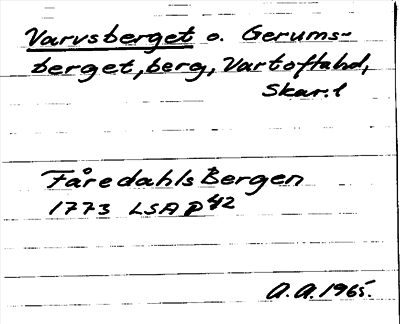 Varvsberget o. Gerums-
berget, berg, Vartoftahd,
Skar. l
Fåredahls Bergen
1773 LSA P 42
A.A. 1965.